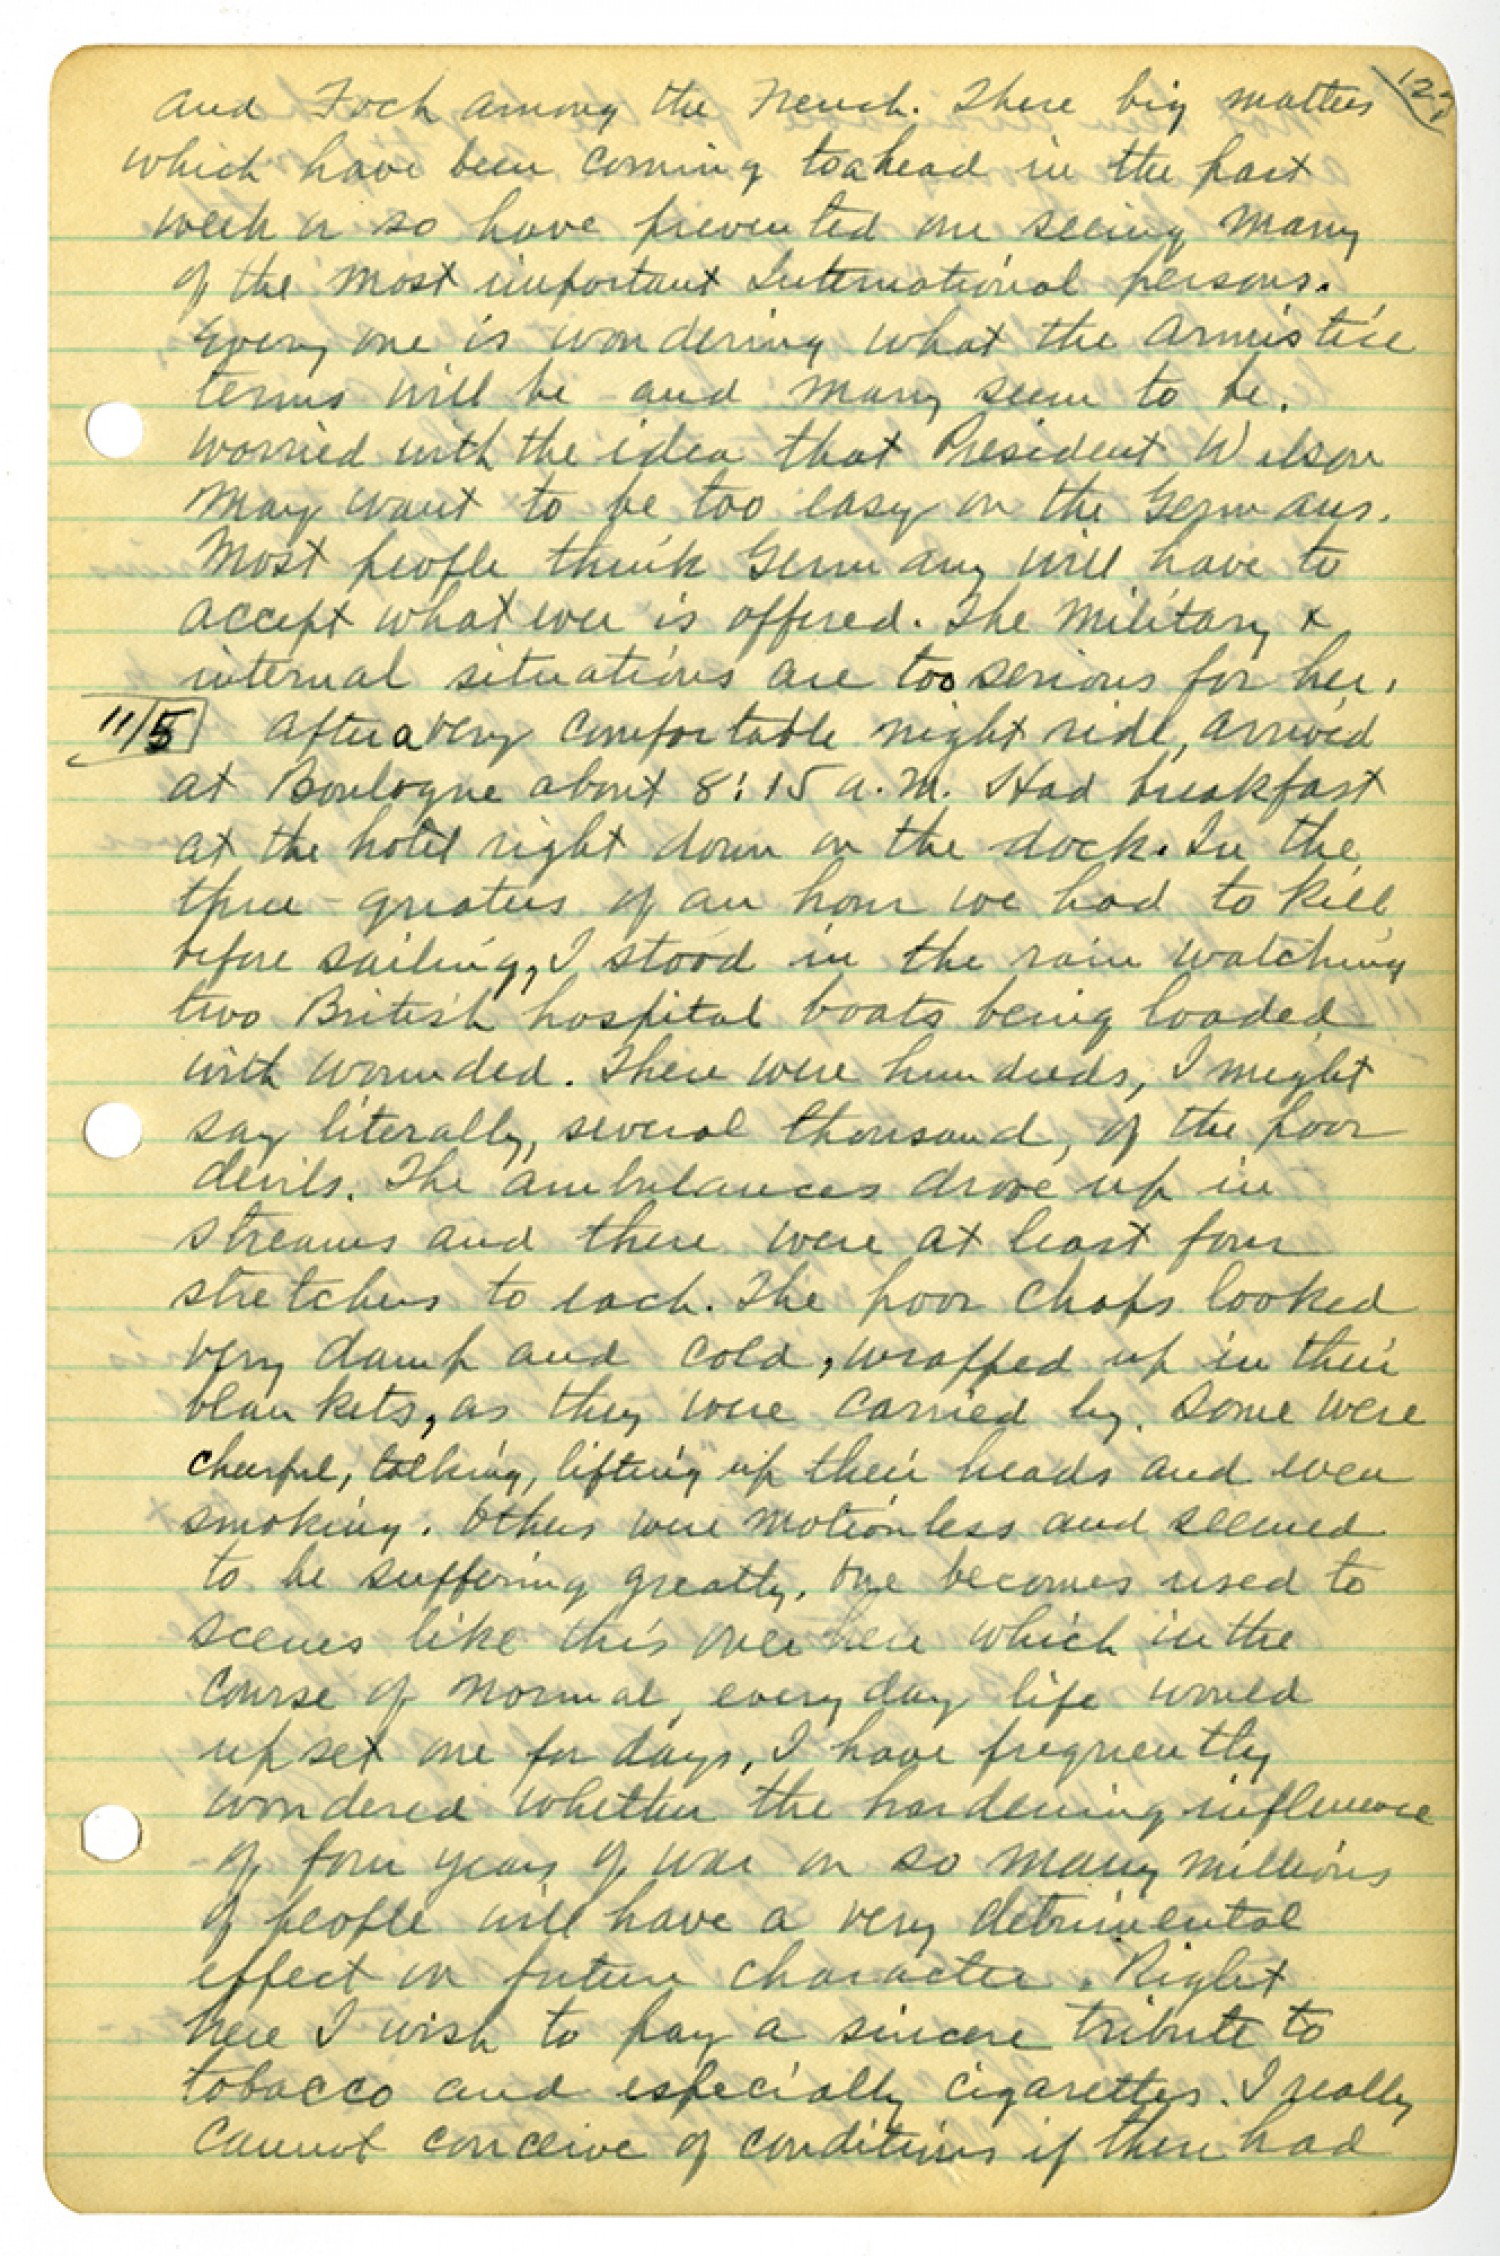 127
and Foch among the French. These big matters
which have been coming to a head in the past
week or so have prevented our seeing many
of the most important International persons.
Every one is wondering what the armistice
terms will be - and many seem to be.
worried with the idea that President Wilson
may want to be too easy on the Germans.
Most people think Germany will have to
accept what ever is offered. The military &
internal situations are too serious for her.
11/5 After a very comfortable night ride, arrived
at Boulogne about 8:15 a.m. Had breakfast
at the hotel right down on the dock. In the
three-quaters of an hour we had to kill
before sailing, I stood in the rain watching
two British hospital boats being loaded
with wounded. There were hundreds, I might
say literally, several thousand, of the poor
devils. The ambulances drove up in
streams and there were at least four
stretchers to each. The poor chaps looked
very damp and cold, wrapped up in their
blankets, as they were carried by. Some were
cheerful, talking, lifting up their heads and even
smoking. Others were motionless and seemed
to be suffering greatly. One becomes used to
scenes like this over here which, in the
course of normal, every day life would
upset one for days. I have frequently
wondered whether the hardening influence
of four years of war on so many millions
of people will have a very detrimental
effect on future character. Right
here I wish to pay a sincere tribute to
tobacco and especially cigarettes. I really
cannot conceive of conditions if there had